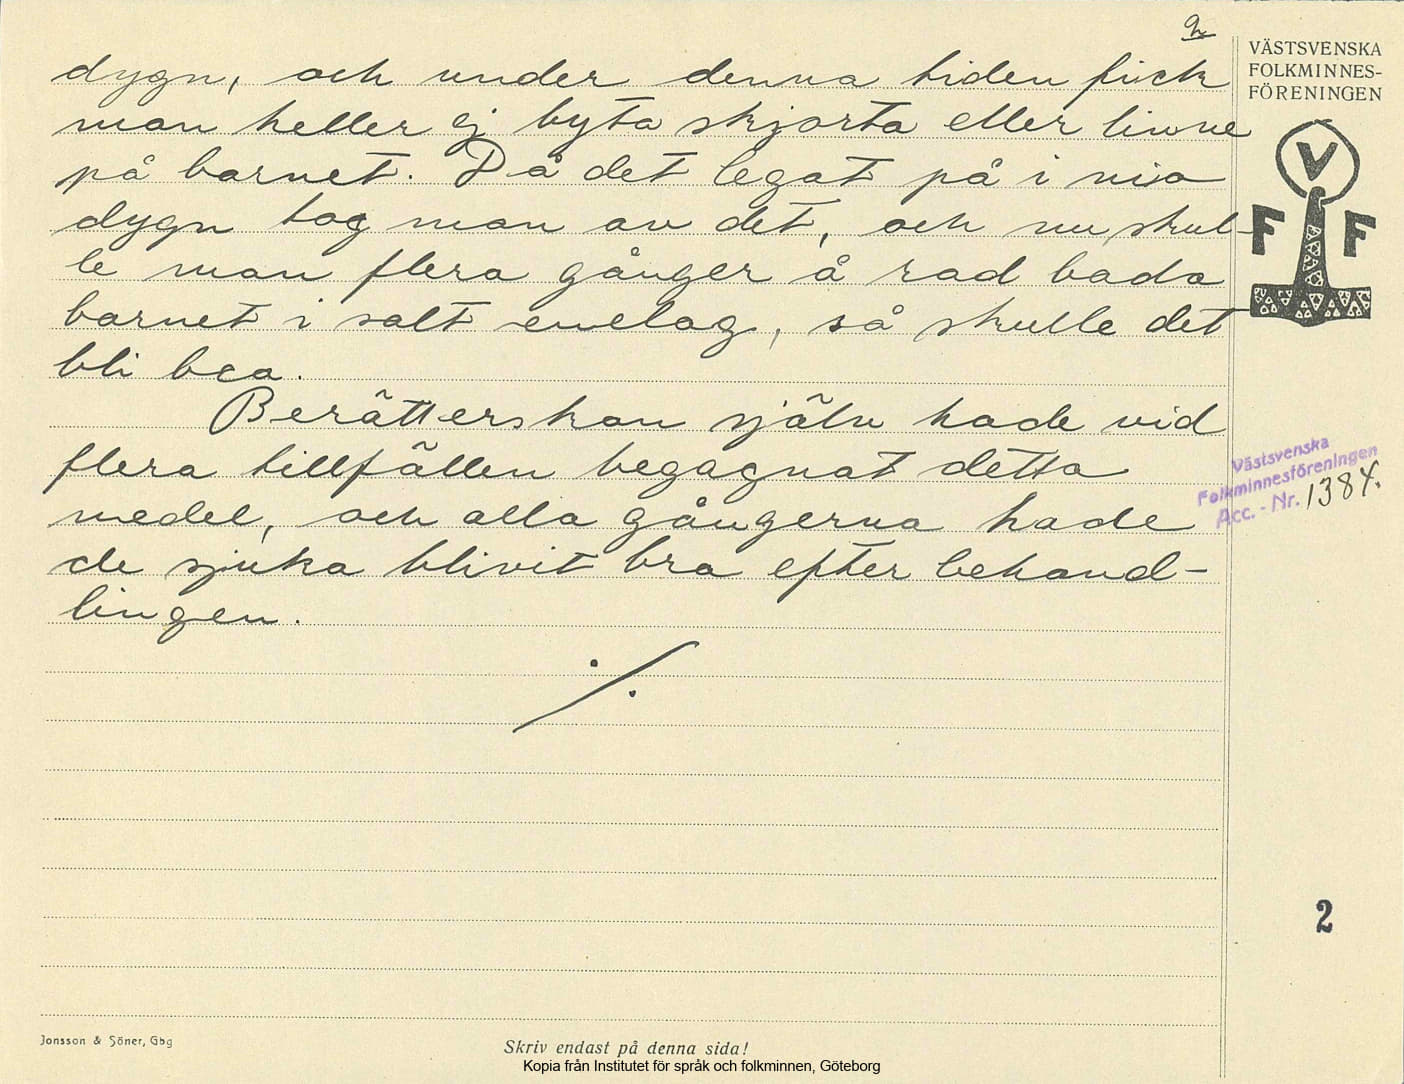 2
VÄSTSVENSKA
FOLKMINNES-
FÖRENINGEN
V
F F
dygn, och under denna tiden fick
man heller ej byta skjorta eller linne
på barnet. Då det legat på i nio
dygn tog man av det, och nu skul-
le man flera gånger å rad bada
barnet i salt enelag, så skulle det
bli bra.
Berätterskan själv hade vid
flera tillfällen begagnat detta
medel, och alla gångerna hade
de sjuka blivit bra efter behand-
lingen.
./.
Västsvenska
Folkminnesföreningen
Acc. - Nr. 1384.
2
Jonsson & Söner, Gbg
Skriv endast på denna sida!
Kopia från Institutet för språk och folkminnen, Göteborg